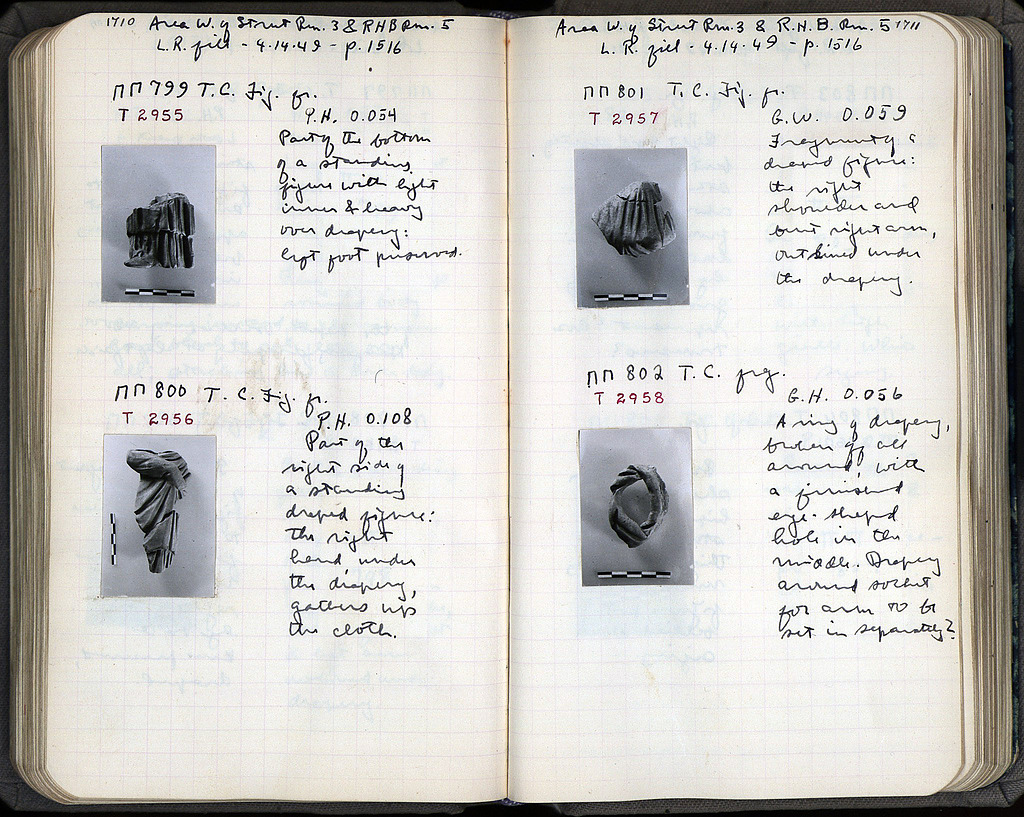 1710 Area W. of Street Rm. 3 & RHB Rm. 5
L.R. fill - 4.14.49 - p. 1516
ΠΠ 799 T.C. Fig. fr.
T 2955
P.H. 0.054
Part of the bottom
of a standing
figure with light
inner & heavy
over drapery:
left foot preserved.
ΠΠ 800 T.C. Fig. fr.
T 2956
P.H. 0.108
Part of the
right side of
a standing
draped figure:
the right
hand, under
the drapery,
gathers up
the cloth.
Area W. of Street Rm. 3 & R.H.B. Rm. 5 1711
L.R. fill - 4.14.49 - p. 1516
ΠΠ 801 T.C. Fig. fr.
T 2957
G.W. 0.059
Fragment of a
draped figure:
the right
shoulder and
bent right arm,
outlined under
the drapery.
ΠΠ 802 T.C. frg.
T 2958
G.H. 0.056
A ring of drapery,
broken off all
around, with
a finished
eye-shaped
hole in the
middle. Drapery
around socket
for arm to be
set in separately?